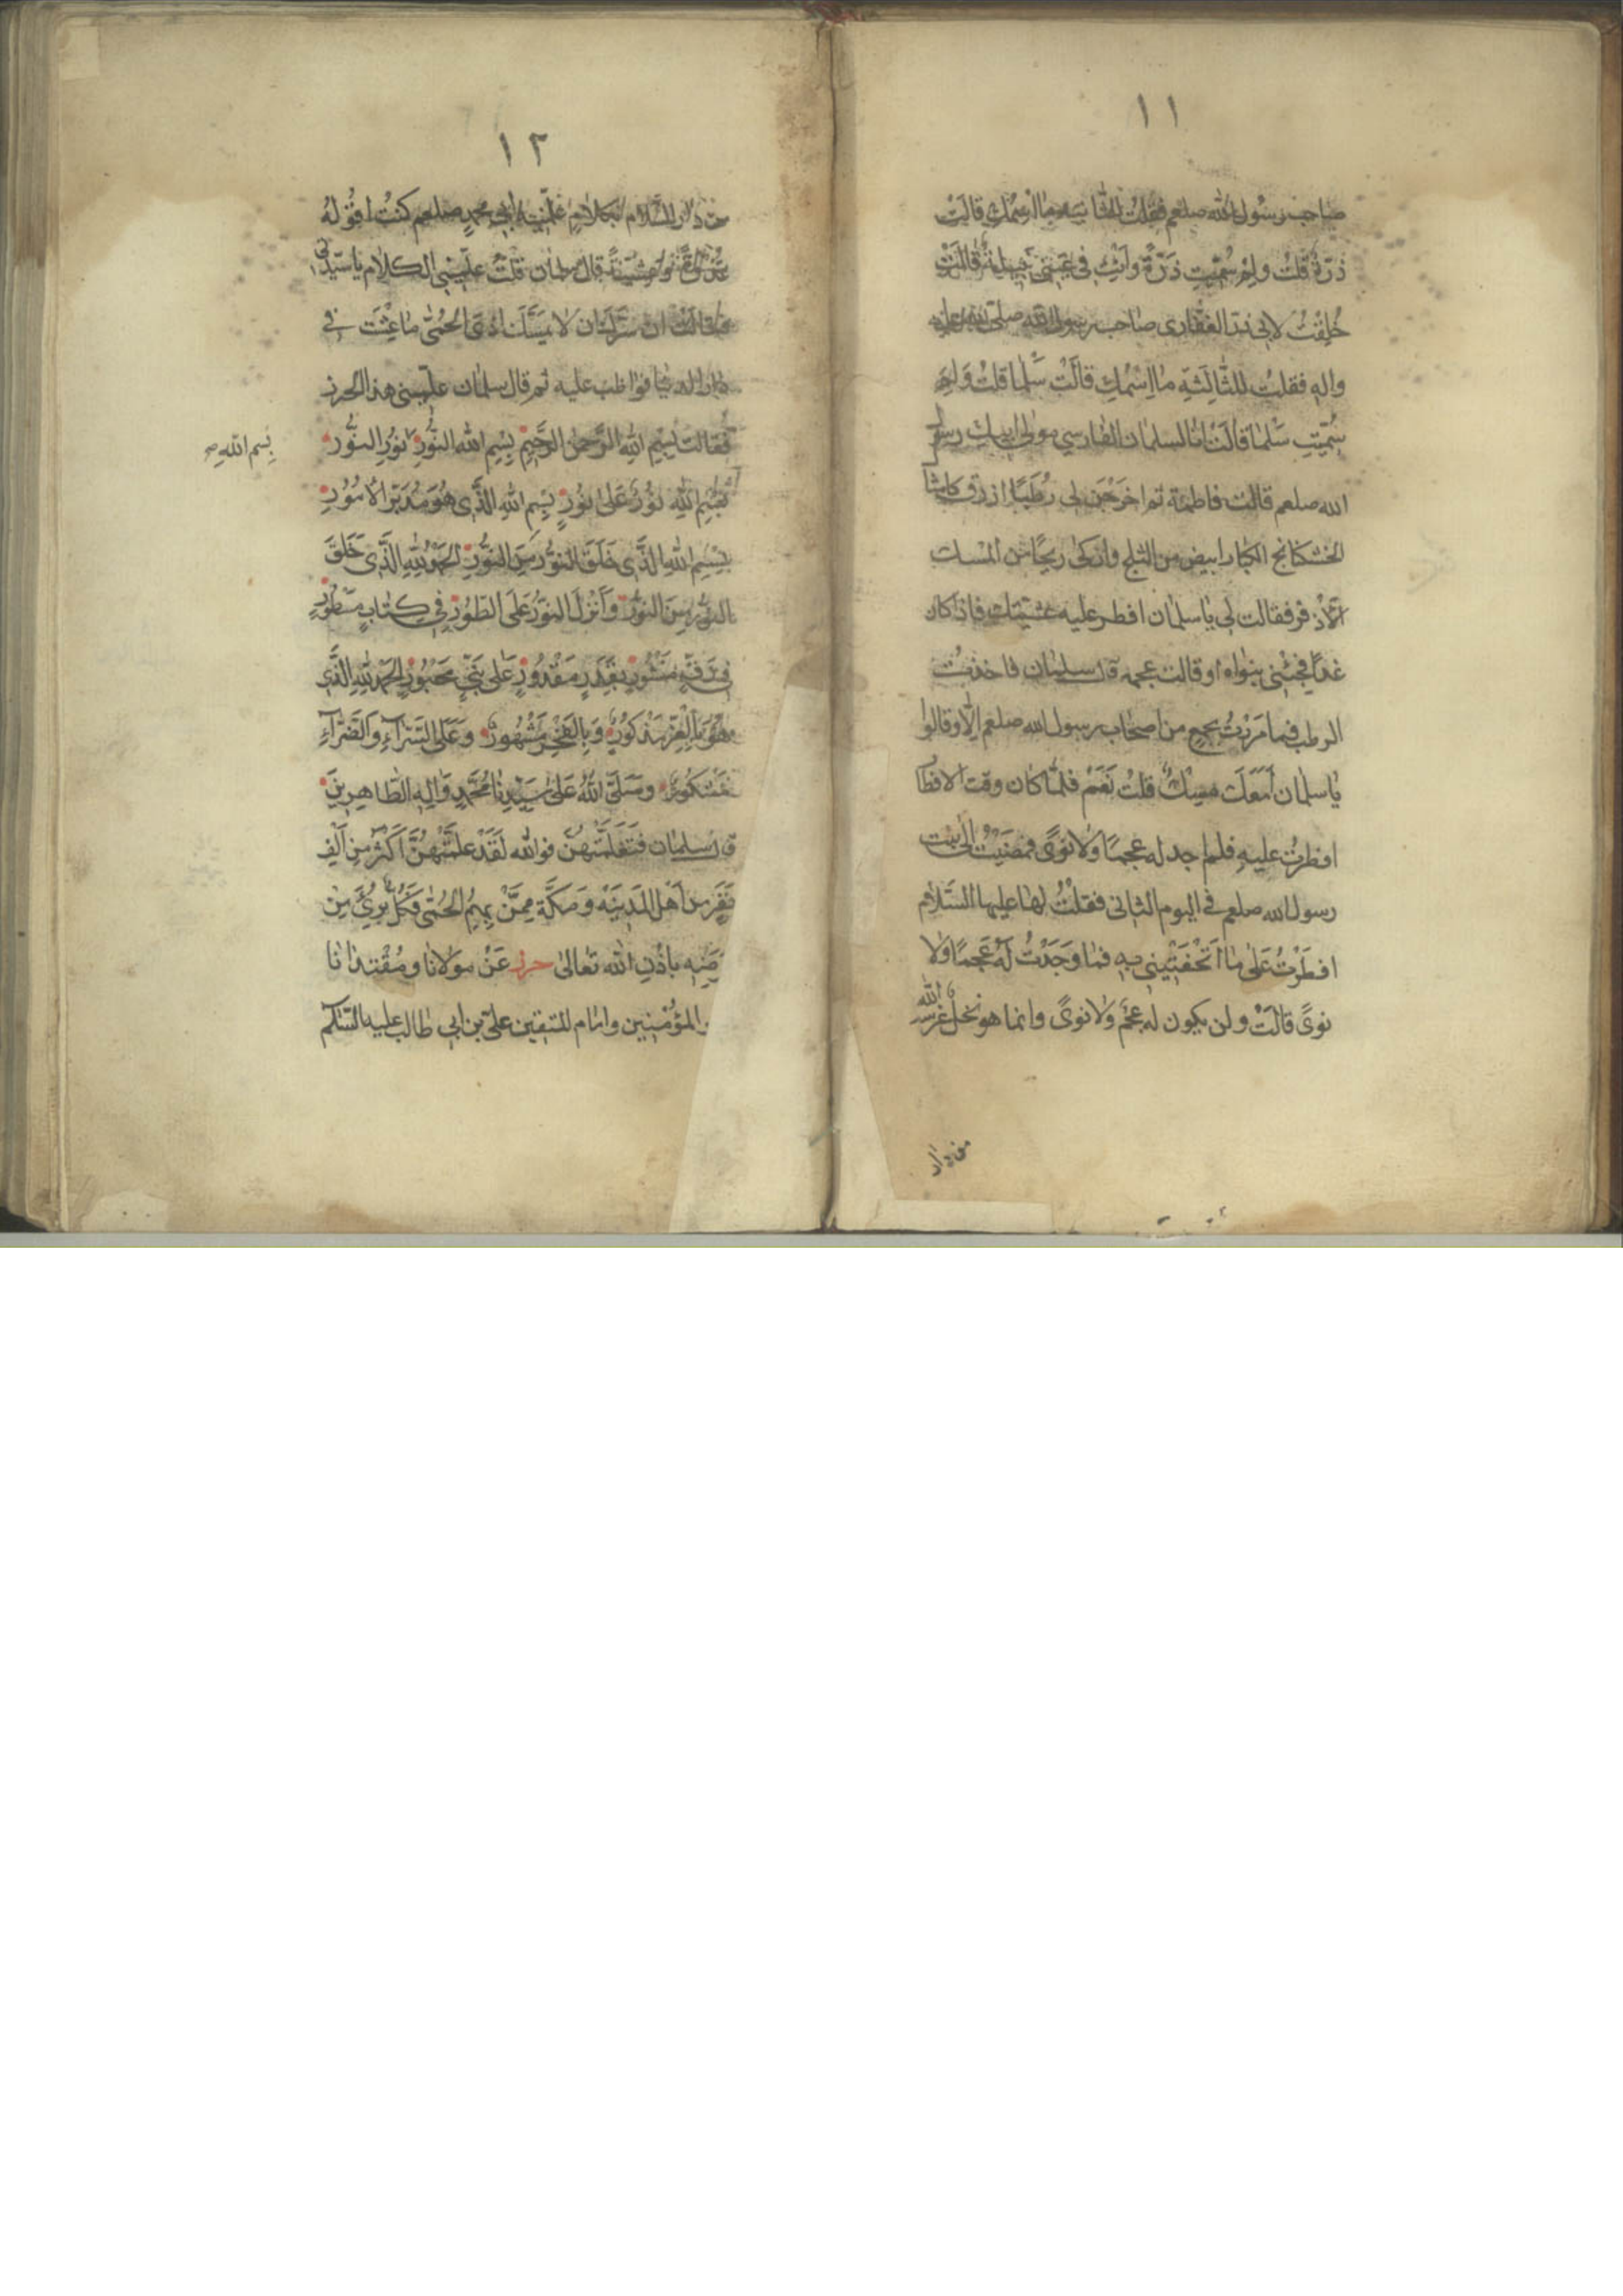 ١١
صاحب رسول الله صلعم فقلت للثانية ما اسمك قالت
ذَرّةُ قلتُ ولِمَ سُمّيتِ ذَرّةً وانتِ في عَيْني نبيلةٌ قالَتْ
خُلِقْتُ لابى ذر الغفارى صاحب رسول الله صلى الله عليه
واله فقلتُ للثّالِثةِ ما اِسْمُكِ قالَتْ سَلْما قلتُ وَلِمَ
سُمّيتِ سَلْما قالَتْ انا لسلمان الفارسي مولى ابيك رسول
الله صلعم قالت فاطمة ثم اخرَجْنَ لى رُطَبًا ازرق كامثا
الخشكنانج الكبار ابيض من الثلج وازكى ريحًا من المسك
الاَذْفر فقالت لي يا سلمان افطر عليه عشيتك فاذا كان
غداً فجئنى بنواه او قالت عجمه قال سلمان فاخذتُ
الرطب فما مَرَرْتُ بجمع من اصحاب رسول الله صلعم الّا وقالوا
يا سلمان اَمَعَكَ مِسْكٌ قلتُ نَعَمْ فلمّا كان وقت الافطا
افطرتُ عليهِ فلم اجد له عجمًا ولا نوىً فمضَيْتُ الى بنت
رسول الله صلعم فى اليوم الثانى فقلْتُ لها عليها السَّلام
افطَرْتُ عَلى ما اَتْحَفْتِينى بِه فما وَجَدْتُ لَهُ عَجَمًا وَلا
نوىً قالَتْ ولن يكون له عَجَم ولا نوىً وانما هو نخل غَرَسه الله
من دار
١٢
من دار السّلام بكلام علمنيه ابى محمد صلعم كنتُ اقوُلهُ
غُدْوَةً وعشيّةً قال سلمان قلت علّمينى الكلام يا سيّدتى
فقالت ان سَرَّكَ ان لا يمسَّكَ اذى الحُمّى ما عِشْتَ فى
دار الدنيا فواظب عليه ثم قال سلمان علّمينى هذا الحرز
فقالت بِسْمِ اللهِ الرَّحمنِ الرَّحيمِ بِسْمِ الله النّورِ نورِ النّور
بِسْمِ اللهِ نورٌ عَلى نُورٍ بِسْمِ اللهِ الَّذى هُوَ مُدَبّرُ الاُمُورِ
بِسْمِ اللهِ الَّذى خَلَقَ النّورَ مِنَ النّورِ الحَمْدُ للهِ الَّذى خَلَقَ
النّورَ مِنَ النّورِ وَاَنْزَلَ النّورَ عَلَى الطّورِ فى كِتابٍ مَسْطُورٍ
فى رَقٍّ مَنْشُورٍ بِقَدَرٍ مَقْدُورٍ عَلى نَبِيٍّ مَحْبُورٍ الحَمْدُ للهِ الَّذى
هُوَ بِالْعِزِّ مَذكورٌ وَبِالفَخْرِ مَشْهُورٌ وَعَلَى السَّرّآءِ وَالضَّرّآءِ
مَشْكُورٌ وصَلَّى اللهُ عَلى سَيِّدِنا مُحَمَّدٍ وَالِهِ الطّاهِرِينَ
قال سلمان فَتَعَلَّمْتُهُنَّ فوالله لَقَدْ عَلَّمْتُهُنَّ اَكْثَرَ مِنْ اَلْفِ
نَفَرٍ مِنْ اَهْلِ المَدِينَةِ وَمَكَّةَ مِمَّنْ بِهِمُ الحُمّى فَكُلٌّ بُرِئَ مِنْ
مَرَضِه باِذْنِ الله تعالى حرز عَنْ مولانا ومُقْتدانا
المؤمنين وامام المتقين علىّ بن ابى طالب عليه السّلام
بِسم الله